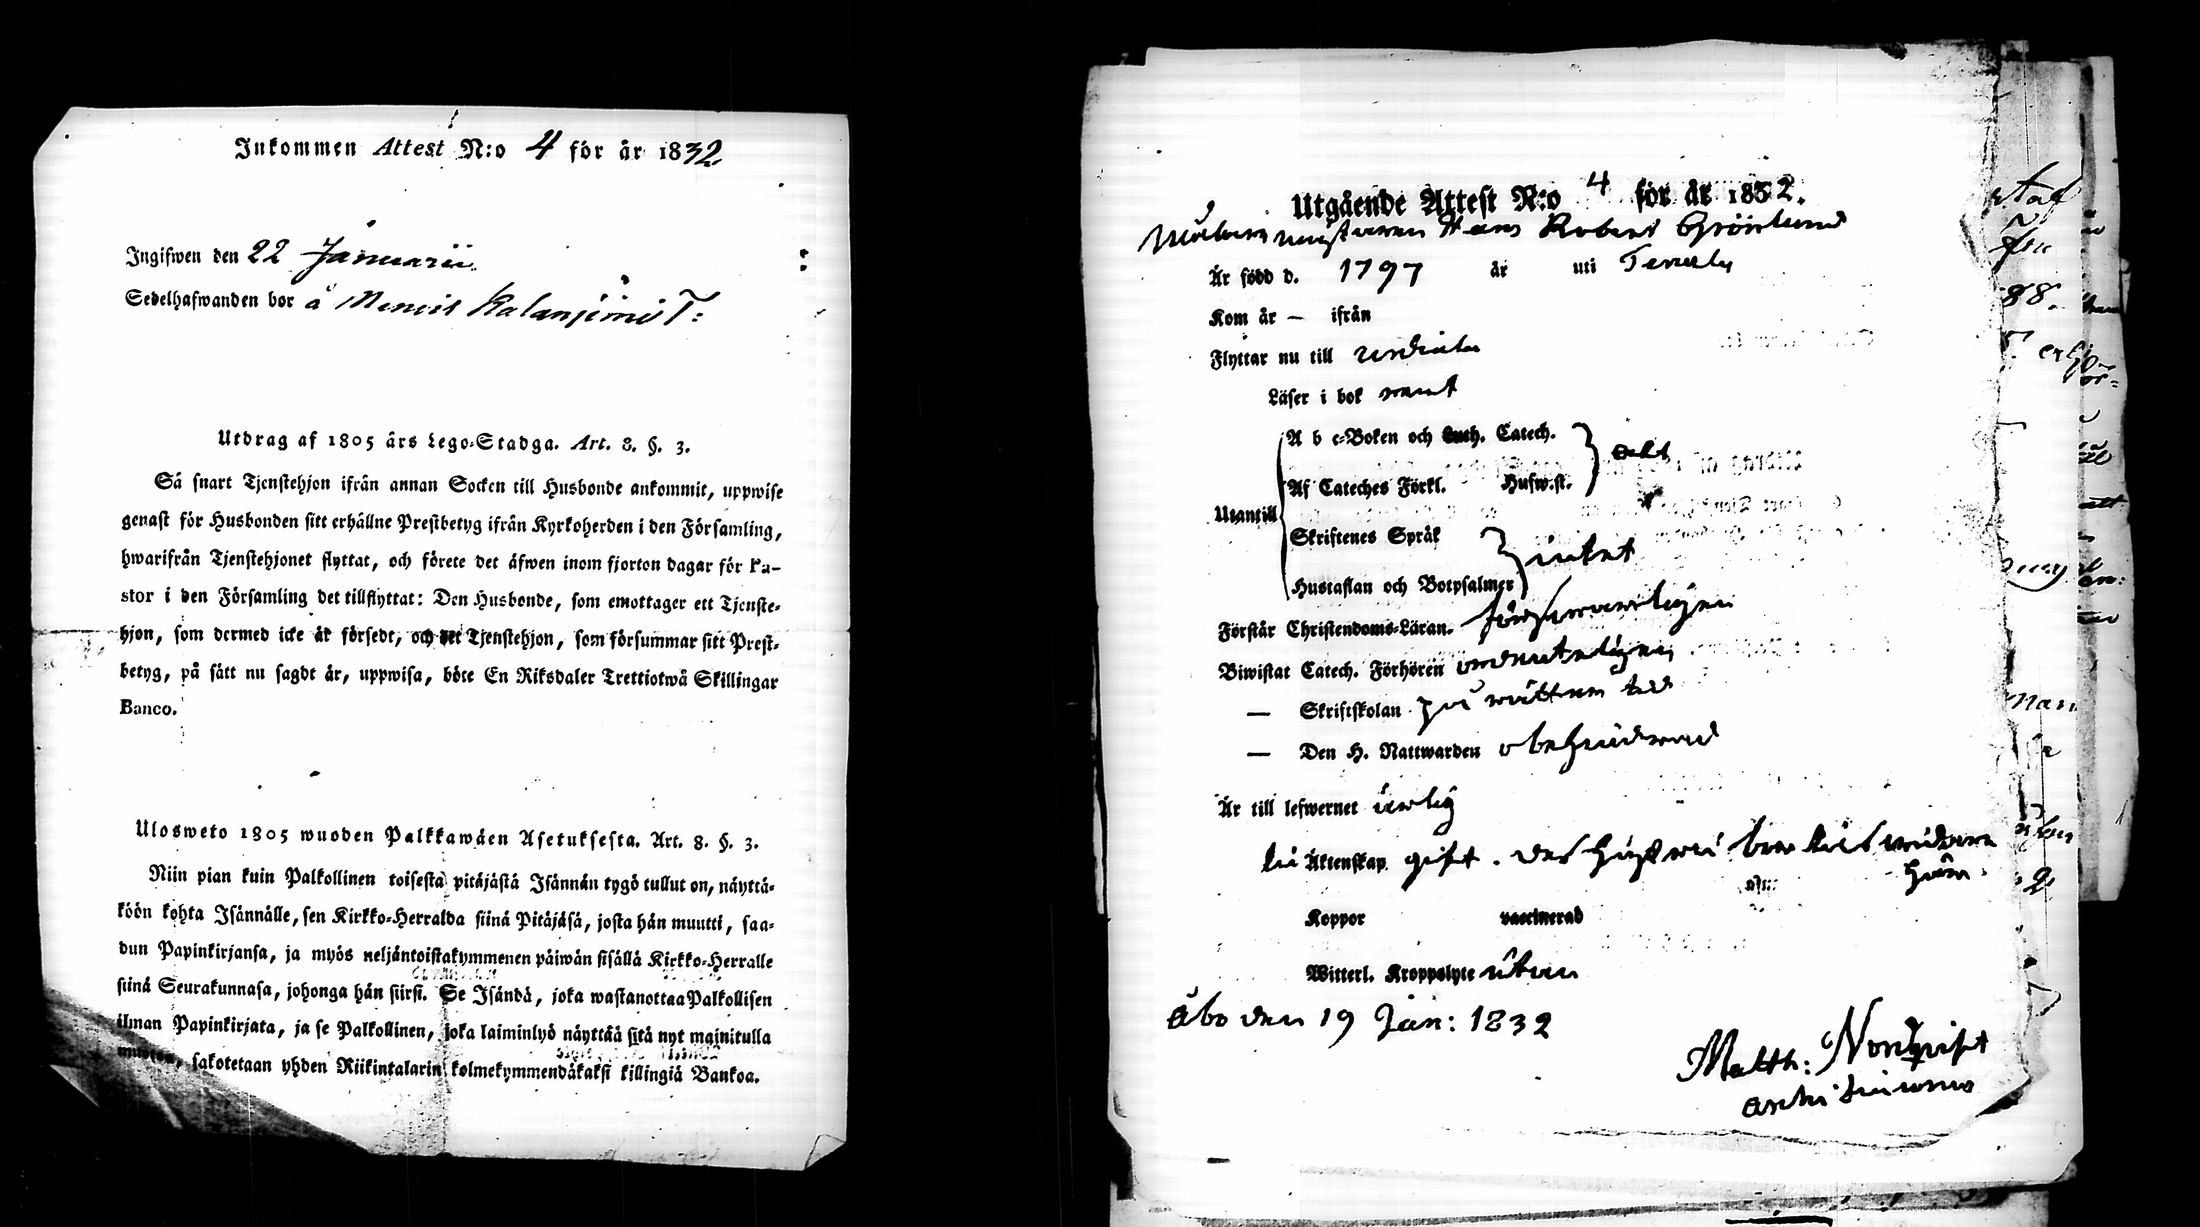 Inkommen Attest N:o 4 för år 1832
Ingifwen den 22 Januarii
Sedelhafwanden bor å
Utdrag af 1805 års Lego-Stadga. Art. 8. §. 3.
Så snart Tjenstehjon ifrån annan Socken till Husbonde ankommit, uppwise
genast för Husbonden sitt erhållne Prestbetyg ifrån Kyrkoherden i den Församling,
hwarifrån Tjenstehjonet flyttat, och förete det äfwen inom fjorton dagar för Pa-
stor i den Församling det tillflyttat: Den Husbonde, som emottager ett Tjenste-
hjon, som dermed icke är försedt, och det Tjenstehjon, som försummar sitt Prest-
betyg, på sätt nu sagdt är, uppwisa, böte En Riksdaler Trettiotwå Skillingar
Banco.
Ulosweto 1805 wuoden Palkkawäen Asetuksesta. Art. 8. §. 3.
Niin pian kuin Palkollinen toisesta pitäjästä Isännän tygö tullut on, näyttä-
köön kohta Isännälle, sen Kirkko-Herralda siinä Pitäjäsä, josta hän muutti, saa-
dun Papinkirjansa, ja myös neljäntoistakymmenen päiwän sisällä Kirkko-Herralle
siinä Seurakunnasa, johonga hän siirsi. Se Isändä, joka wastanottaa Palkollisen
ilman Papinkirjata, ja se Palkollinen, joka laiminlyö näyttää sitä nyt mainitulla
muotoa, sakotetaan yhden Riikintalarin kolmekymmendäkaksi killingiä Bankoa.
Utgående Attest N:o 4 för år 1832.
Hans Robert Grönlund
Är född d. 1797 år uti Tenala
Kom år — ifrån
Flyttar nu till
Läser i bok rent
A b c-Boken och Luth. Catech.
Af Cateches Förkl. Husw.st.
Utantill
Skriftenes Språk
intet
Hustaflan och Botpsalmer
Förstår Christendoms-Läran. försvarligen
Biwistat Catech. Förhören ordenteligen
— Skriftskolan på rättan tid
— Den H. Nattwarden obehindrad
Är till lefwernet ärlig
till Äktenskap gift. des hustru
här
Koppor vaccinerad
Witterl. Kroppslyte utan
Åbo den 19 Jan: 1832
Matth: Nordqvist